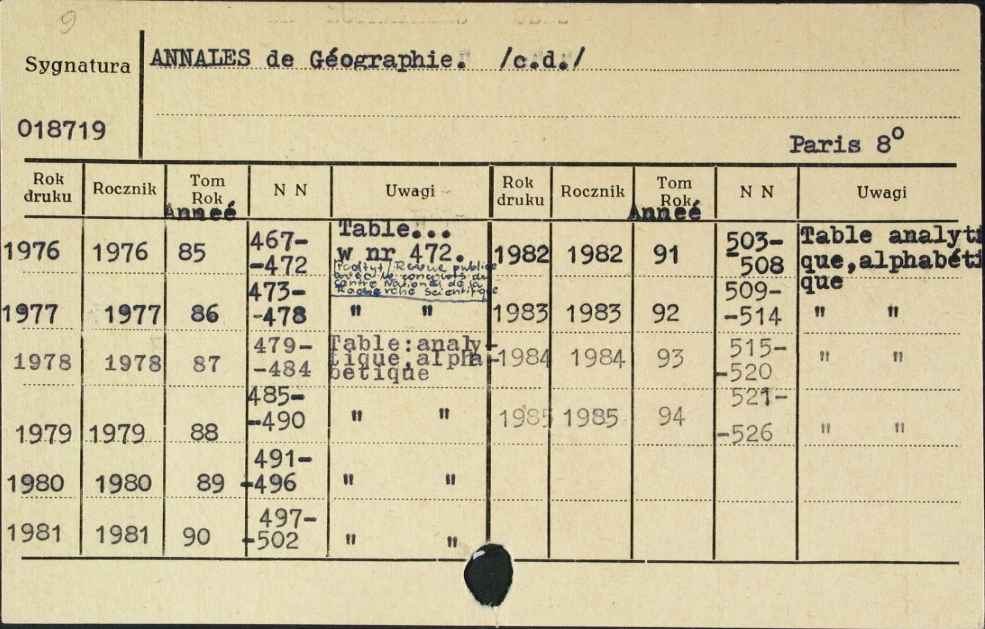 9
Sygnatura ANNALES de Géographie. /c.d./
018719
Paris 8°
Rok druku Rocznik Tom Rok Anneé N N Uwagi Rok druku Rocznik Tom Rok Anneé N N Uwagi
1976 1976 85 467-
-472 Table...
w nr 472.
Podtyt/Revue publiée
avec le concours du
Centre National de la
Recherche Scientifique
1977 1977 86 473-
-478 " "
1978 1978 87 479-
-484 Table:analy-
tique,alpha-
bétique
1979 1979 88 485-
-490 " "
1980 1980 89 491-
-496 " "
1981 1981 90 497-
-502 " "
1982 1982 91 503-
-508 Table analyti
que,alphabéti
que
1983 1983 92 509-
-514 " "
1984 1984 93 515-
-520 " "
1985 1985 94 521-
-526 " "